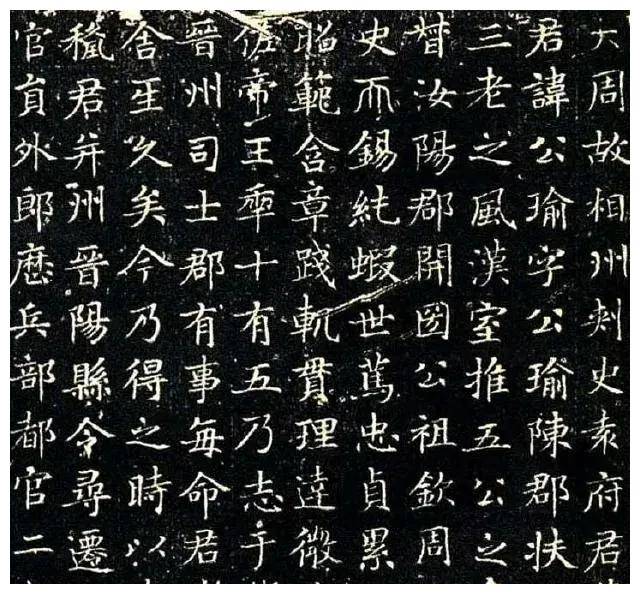 大周故相州刾史袁府君
君諱公瑜字公瑜陳郡扶
三老之風漢室推五公之
督汝陽郡開圀公祖欽周
史而錫純蝦世篤忠貞累
昭範含章踐軌貫理達微
佐帝王年十有五乃志于
晉州司士郡有事每命君
舍生久矣今乃得之時以
君并州晉陽縣令尋遷
官員外郎歷兵部都官二